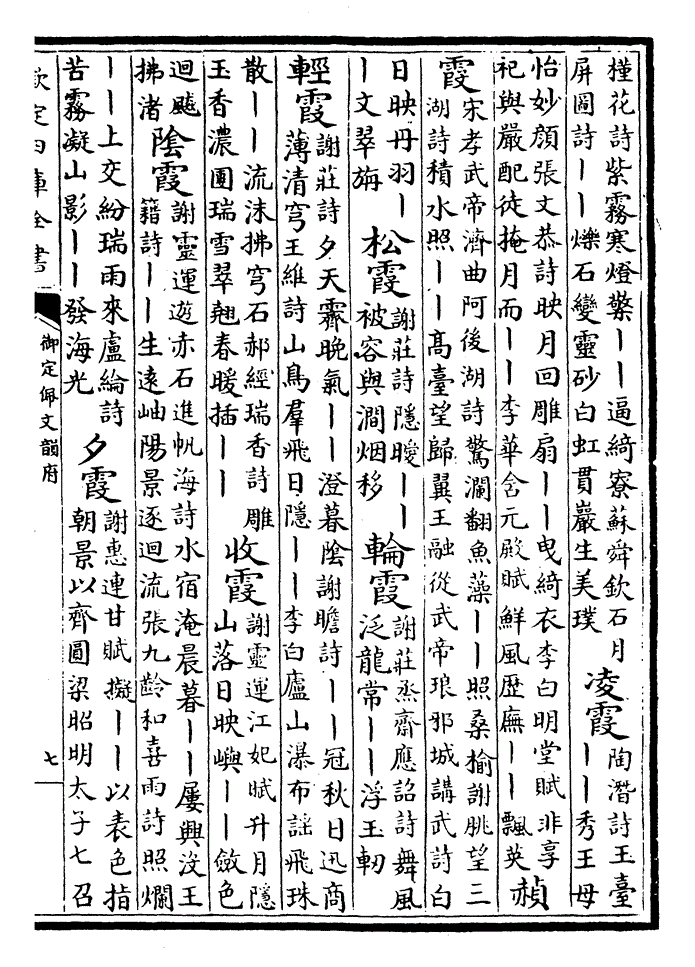 槿花詩紫霧寒燈縈——逼綺寮蘇舜欽石月
屏圖詩——爍石變靈砂白虹貫巖生美璞
凌霞
陶潛詩王臺
——秀王母
怡妙顔張文恭詩映月回雕扇——曳綺衣李白明堂賦非享
祀與嚴配徒掩月而——李華含元殿賦鮮風歷廡——飄英
赬
霞
宋孝武帝濟曲阿後湖詩驚瀾翻魚藻——照桑榆謝朓望三
湖詩積水照——髙臺望歸翼王融從武帝琅邪城講武詩白
日映丹羽—
—文翠旃
松霞
謝莊詩隱曖——
被容與澗烟移
輪霞
謝莊烝齋應詔詩舞風
泛龍常——浮玉軔
輕霞
謝莊詩夕天霽晚氣——澄暮陰謝瞻詩——冠秋日迅商
薄清穹王維詩山鳥羣飛日隱——李白廬山瀑布謡飛珠
散——流沫拂穹石郝經瑞香詩雕
玉香濃圃瑞雪翠翹春暖插——
收霞
謝靈運江妃賦升月隱
山落日映嶼——斂色
迴飈
拂渚
陰霞
謝靈運遊赤石進帆海詩水宿淹晨暮——屢興没王
籍詩——生遠岫陽景逐迴流張九齡和喜雨詩照爛
——上交紛瑞雨來盧綸詩
苦霧凝山影——發海光
夕霞
謝惠連甘賦擬——以表色指
朝景以齊圓梁昭明太子七召
欽定四庫全書
御定佩文韻府
七